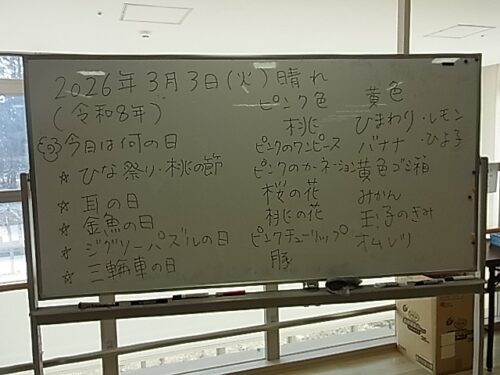 2026年3月3日(火)晴れ
(令和8年)
今日は何の日
☆ ひな祭り・桃の節
☆ 耳の日
☆ 金魚の日
☆ ジグソーパズルの日
☆ 三輪車の日
ピンク色
桃
ピンクのワンピース
ピンクのカーネーション
桜の花
桃の花
ピンクチューリップ
豚
黄色
ひまわり・レモン
バナナ・ひよ子
黄色ゴミ箱
みかん
玉子のきみ
オムレツ